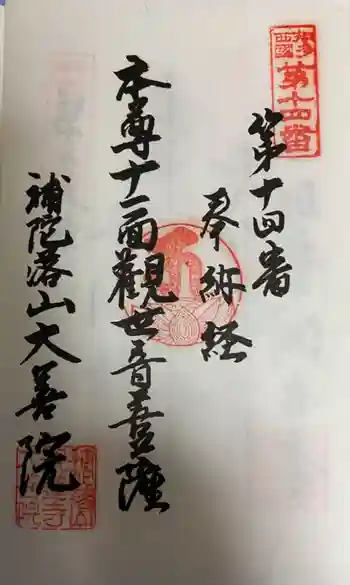 西國
第十四番
第十四番
奉納経
本尊十一面觀世音菩薩
補陀落山大善院